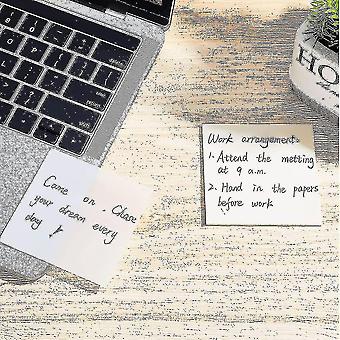 HO
Work arrangement:
1. Attend the metting
at 9 a.m.
2. Hand in the papers
before work
Come on. Chase
your dream every
day!